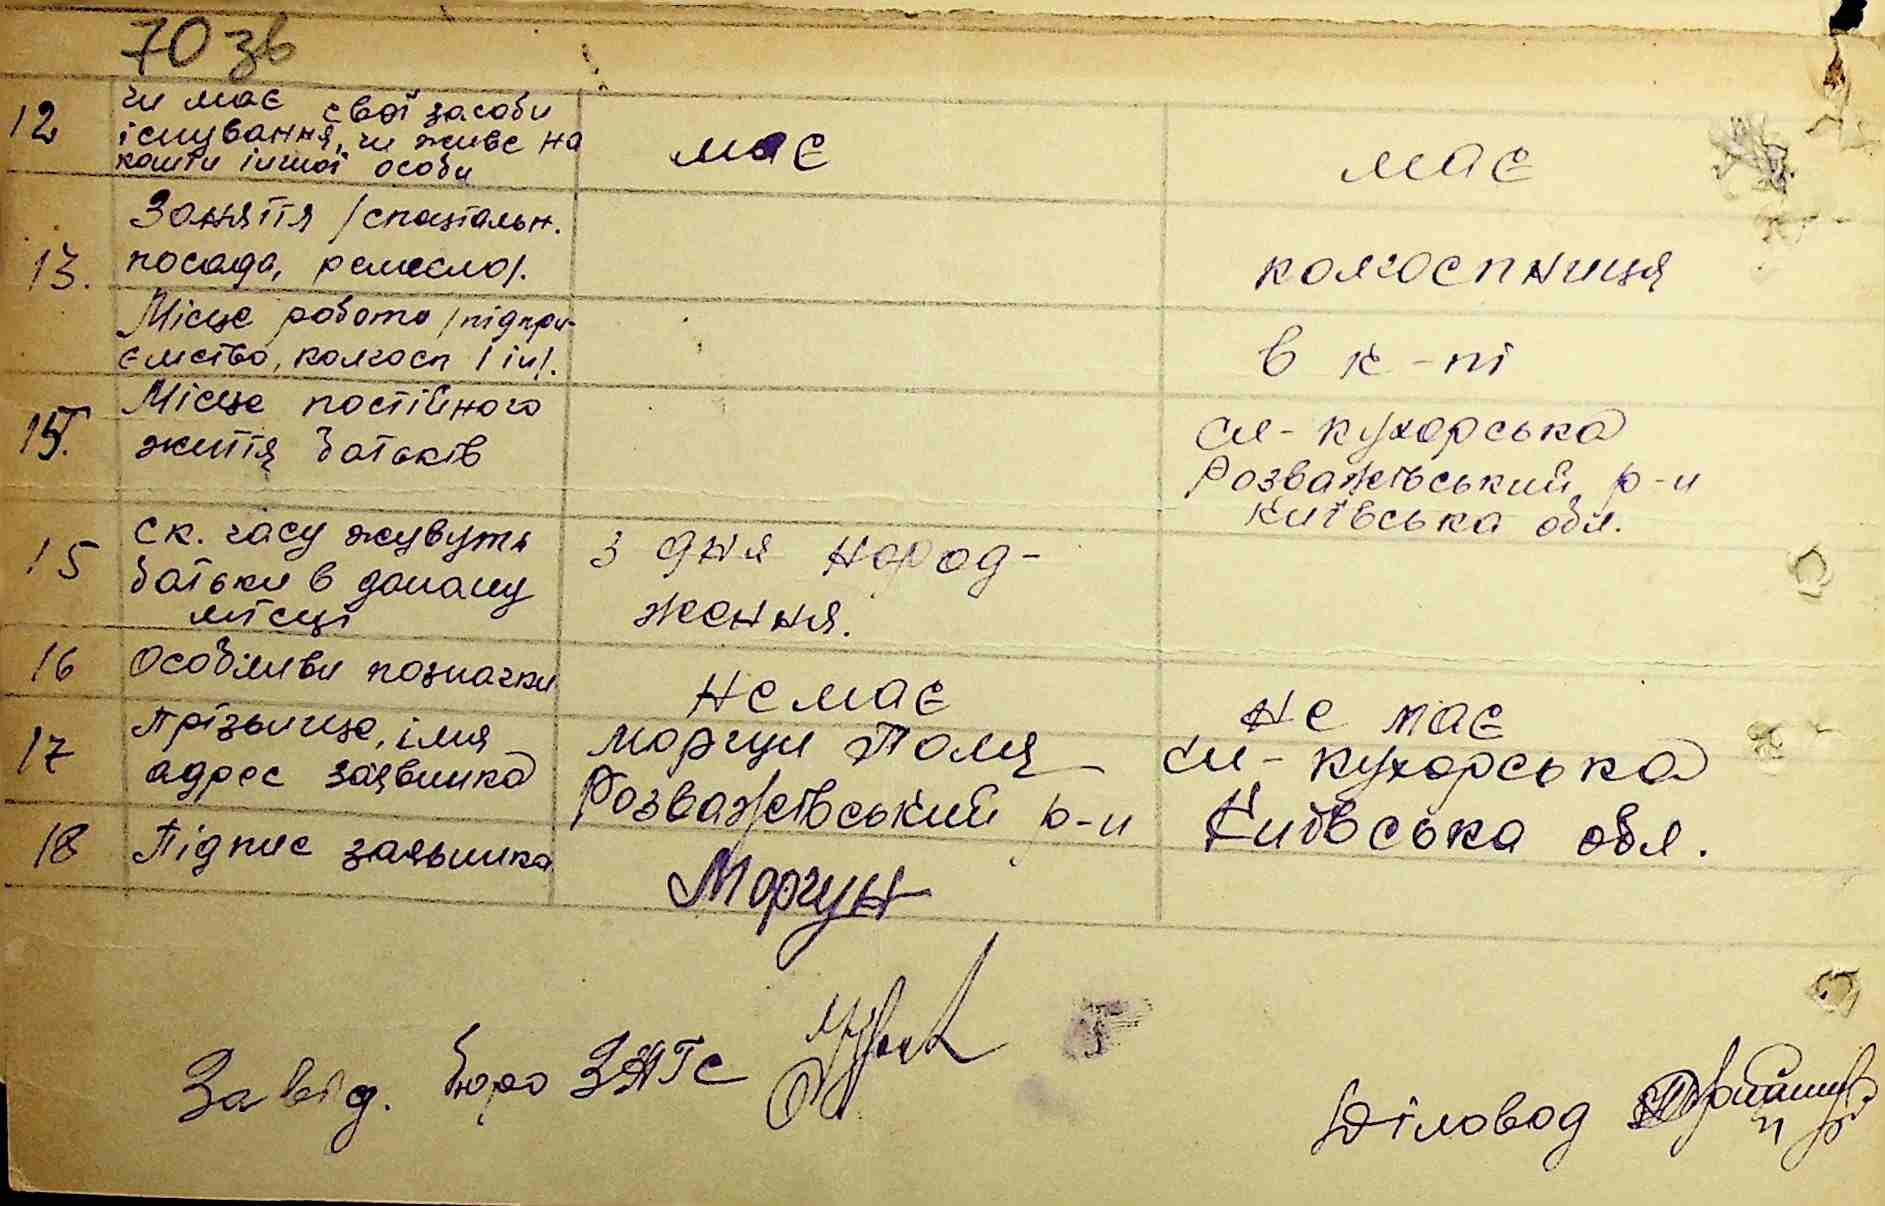 70 зв
12
чи має свої засоби
існування, чи живе на
кошти іншої особи
має
має
13.
Заняття /спаціальн.
посада, ремесло/.
колхоспниця
Місце робото /підпри-
ємство, колхосп / ін/.
в к-пі
15.
Місце постійного
життя батьків
см-кухорська
Розважівський р-н
Київська обл.
15
Ск. часу живуть
батьки в даному
місці
з дня народ-
ження.
16
Особливи позначки
не має
не має
17
Прізьвище, імя
адрес заявника
Моргун Поля
см-кухорська
Розважівський р-н
Київська обл.
18
Підпис заявника
Моргун
Завід. бюро ЗАГС
Діловод